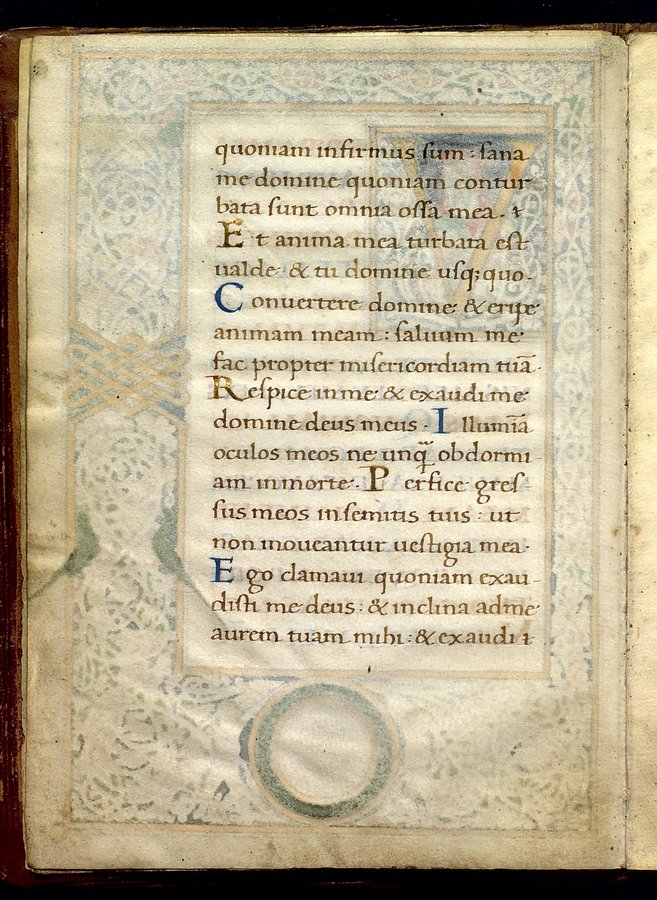 quoniam infirmus sum : sana
me domine quoniam contur
bata sunt omnia ossa mea .
Et anima mea turbata est
ualde : & tu domine usq; quo .
Conuertere domine : & eripe
animam meam : saluum me
fac propter misericordiam tuā .
Respice in me & exaudi me
domine deus meus . Illumīa
oculos meos ne unq̄ obdormi
am in morte . Perfice gres
sus meos in semitis tuis : ut
non moueantur uestigia mea .
Ego clamaui quoniam exau
disti me deus : & inclina ad me
aurem tuam mihi : & exaudi